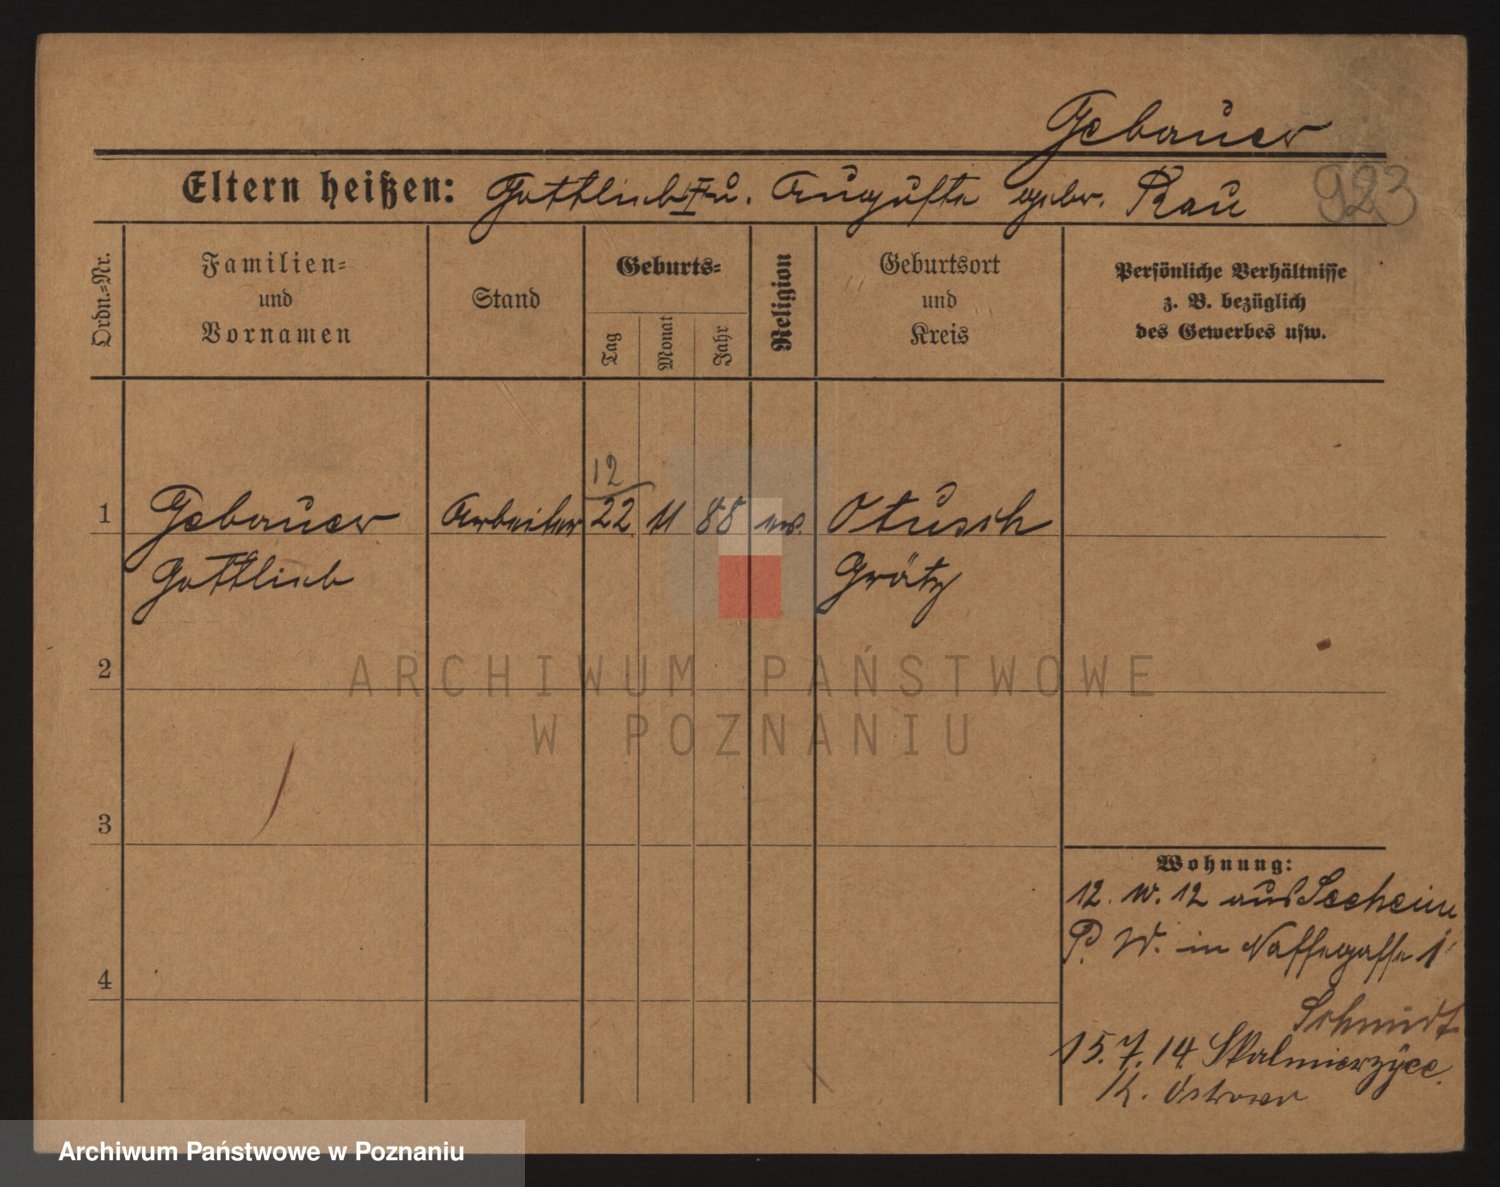 Gebauer
923
Eltern heißen: Gottlieb I u. Auguste gebr. Rau
Ordn.-Nr.
Familien-
und
Vornamen
Stand
Geburts-
Tag
Monat
Jahr
Religion
Geburtsort
und
Kreis
Persönliche Verhältnisse
z. B. bezüglich
des Gewerbes usw.
12
1 Gebauer Arbeiter 22 11 88 ev. Otusch
Gottlieb Grätz
2
ARCHIWUM PAŃSTWOWE
W POZNANIU
3
4
Wohnung:
12. 12 aus Seeheim
P. W. in Nassegasse 1
Schmidt
15.7.14 Skalmierzyce
K. Ostrowo
Archiwum Państwowe w Poznaniu